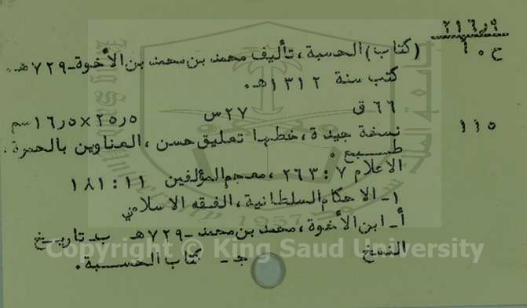 ٢١٦٫٩
ح ٠ أ
(كتاب) الحسبة، تأليف محمد بن محمد بن الأخوة - ٧٢٩هـ.
كتب سنة ١٣١٢هـ.
٦٦ ق ٢٧ س ٢٥٫٥×١٦٫٥ سم
نسخة جيدة، خطها تعليق حسن، العناوين بالحمرة. ١١٥
طبع.
الاعلام ٧ : ٢٦٣، معجم المؤلفين ١١ : ١٨١
١- الاحكام السلطانية، الفقه الاسلامي
أ- ابن الأخوة، محمد بن محمد - ٧٢٩هـ ب- تاريخ
النسخ ج- كتاب الحسبة.
Copyright © King Saud University
1957